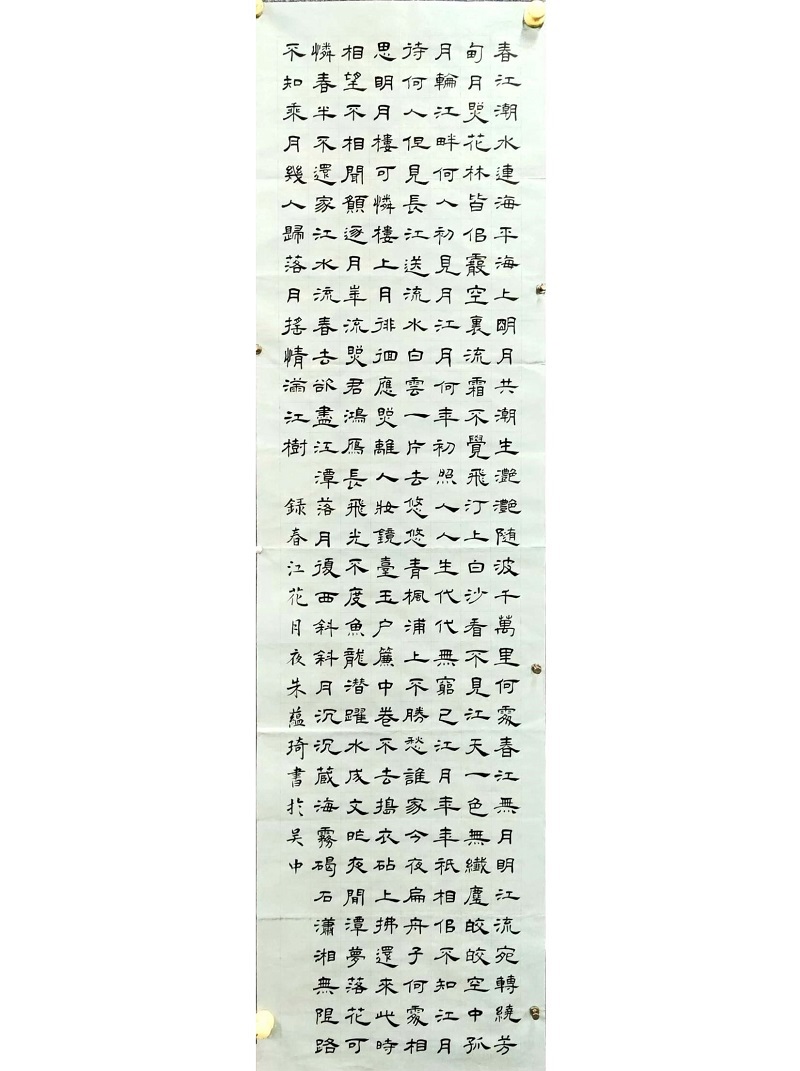 春江潮水連海平海上明月共潮生灧灧随波千萬里何處春江無月明江流宛轉繞芳
甸月照花林皆佀霰空裏流霜不覺飛汀上白沙看不見江天一色無纖塵皎皎空中孤
月輪江畔何人初見月江月何年初照人人生代代無窮已江月年年祇相佀不知江月
待何人但見長江送流水白雲一片去悠悠青楓浦上不勝愁誰家今夜扁舟子何處相
思明月樓可憐樓上月徘徊應照離人妝鏡臺玉户簾中卷不去搗衣砧上拂還來此時
相望不相聞願逐月華流照君鴻鴈長飛光不度魚龍潜躍水成文昨夜閒潭夢落花可
憐春半不還家江水流春去欲盡江潭落月復西斜斜月沉沉蔵海霧碣石瀟湘無限路
不知乘月幾人歸落月摇情滿江樹 録春江花月夜朱蕴琦書於吴中